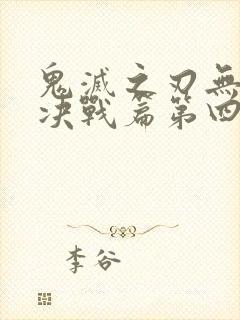 鬼滅之刃無
决戰篇第四
李谷